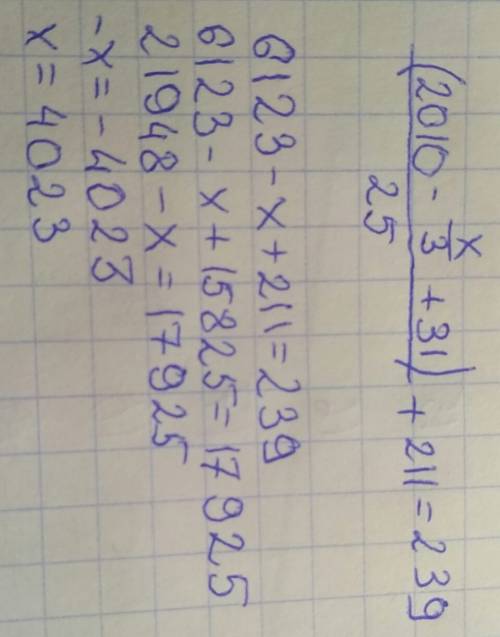 (2010 - x/3 + 31)/25 + 211 = 239
6123 - x + 211 = 239
6123 - x + 15825 = 17925
21948 - x = 17925
-x = -4023
x = 4023